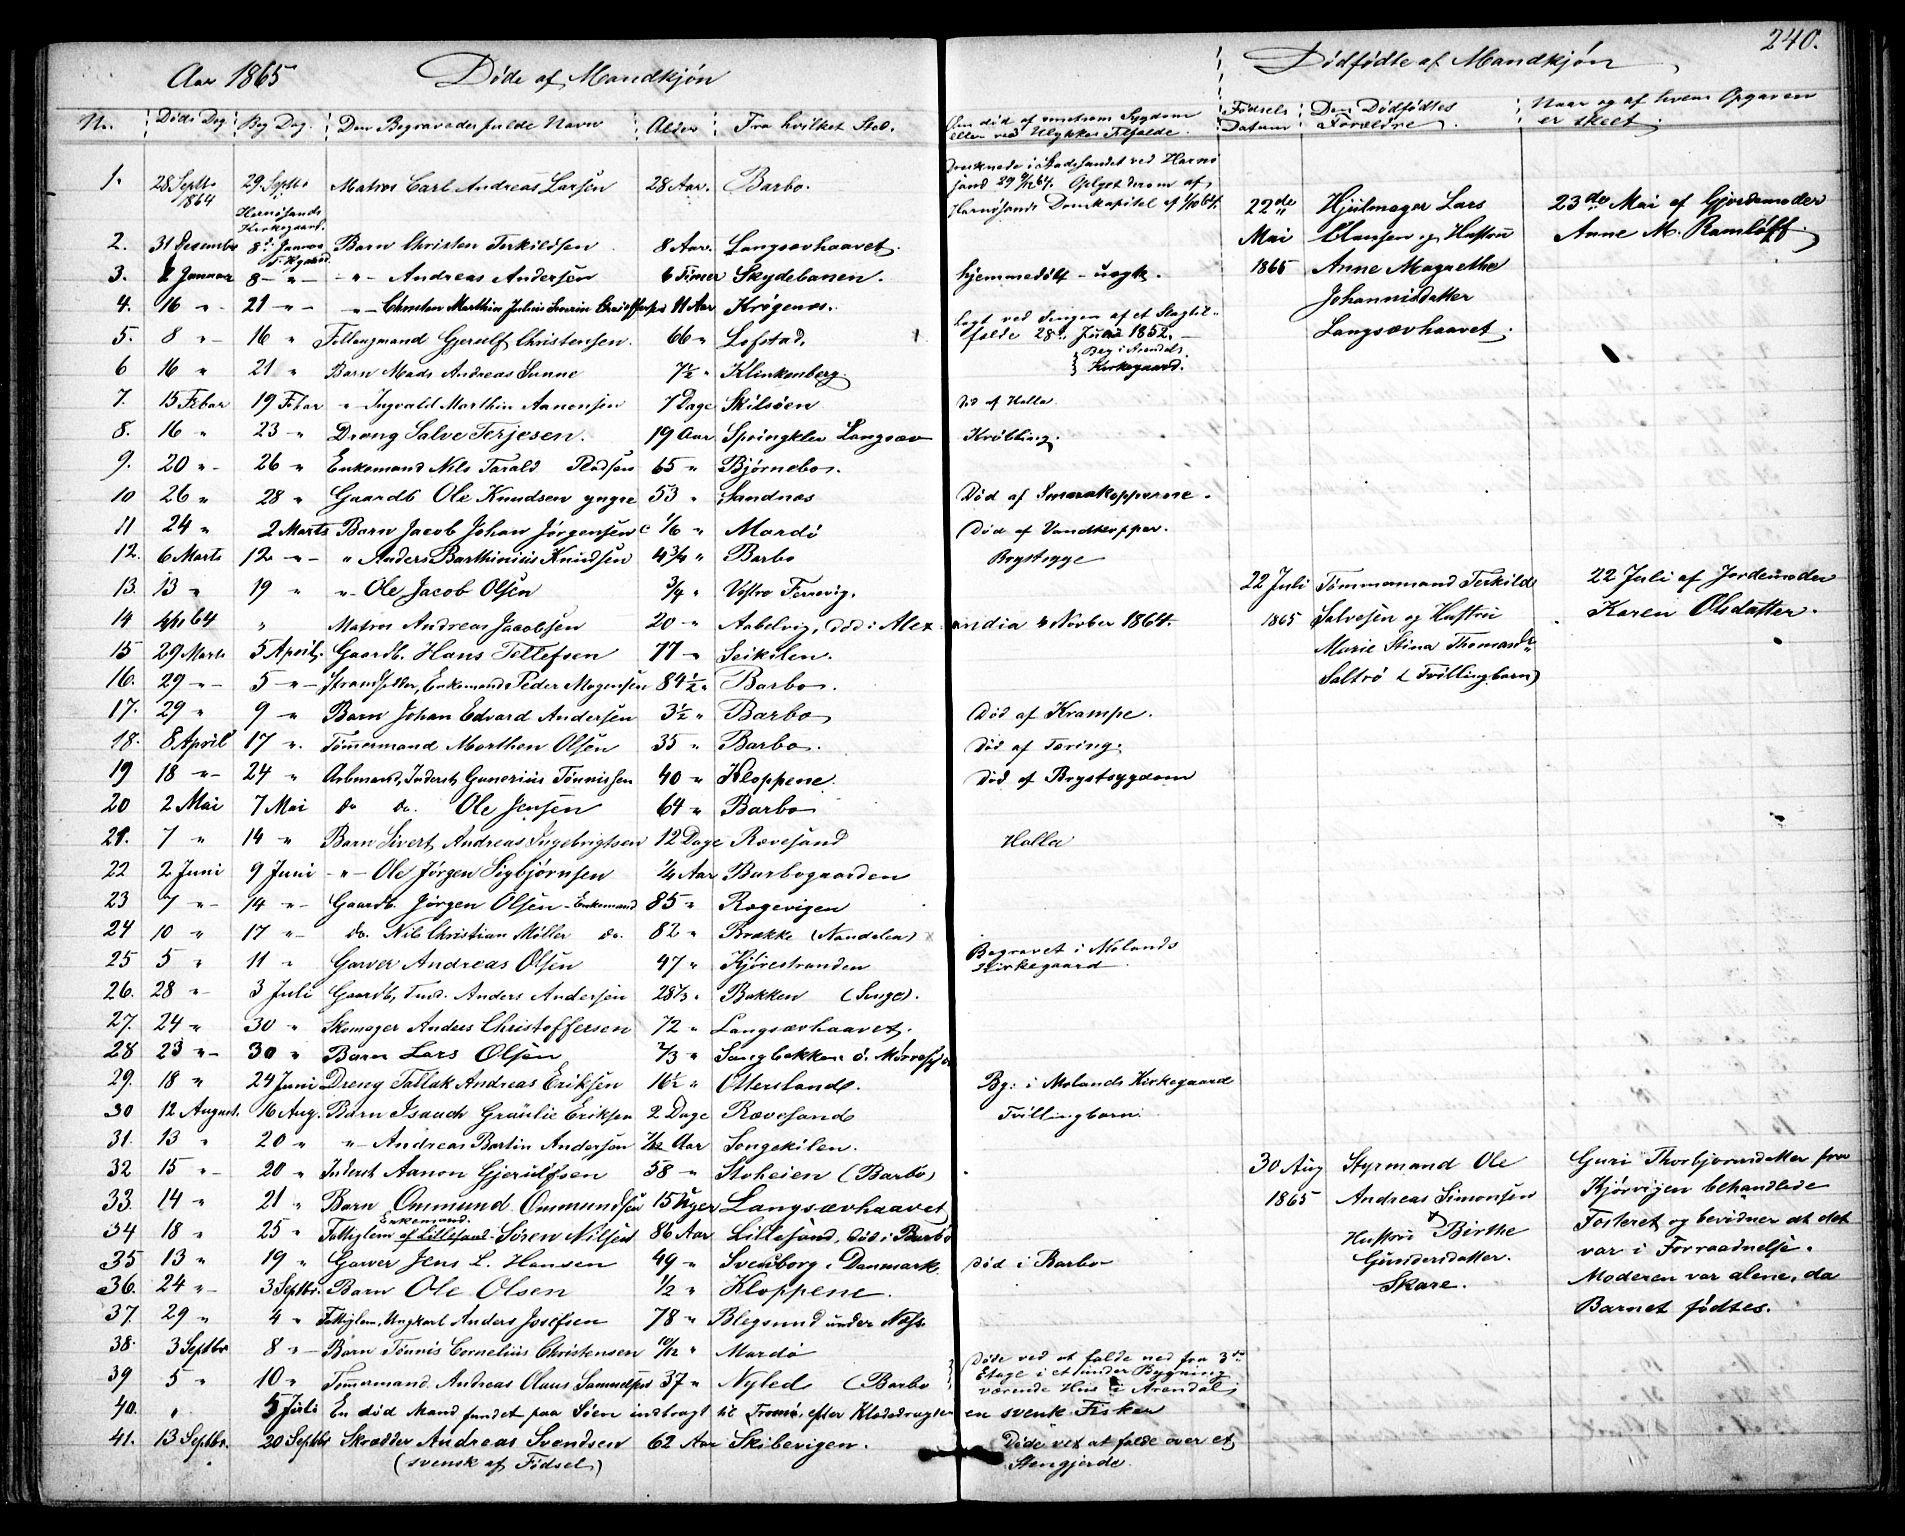 240.
Aar 1865 Døde af Mandkjøn
Dødfødte af Mandkjøn
Nr. Døds Dag Beg Dag. Den Begravedes fulde Navn Alder Fra hvilket Sted.
Om død af smitsom Sygdom eller ved Ulykkes Tilfælde.
Fødsels Datum Den Dødfødtes Forældre. Naar og af hvem Opgaven er skeet.
1. 28 Septbr 1864 29 Septbr Hernøsands Kirkegaard. Matros Carl Andreas Larsen 28 Aar. Barbo.
Druknede i Sundet ved Hernø
sand 29/9 64. Oplyst derom af
Hernøsands Domkapitel af 64.
2. 31 Desember 8de Januar Barn Christen Terkildsen 8 Aar. Langsævhaavet.
3. 2 Januar 8 - " - - " - Andreas Andersen 6 Timer Skydebanen. hjemmedøbt - uægte.
4. 16 " - 21 " - - " - Christen Marthin Julius Severin Christoffersen 11 Aar Krøgenes.
5. 8 " - 16 " Fattigmand Gjeruld Christensen. 66 " Lofstad.
Lagt ved Sengen af et Slagtil-
fælde 28de Juni 1852.
6 16 " 21 " Barn Mads Andreas Sunne 7½ " Klinkenberg.
Beg i Arendals Kirkegaard.
7. 15 Febar 19 Febar " Ingvald Marthin Aanonsen 7 Dage Skilsøen Død af Halla
8. 16 " 23 - " Dreng Salve Terjesen. 19 Aar Springklev Langsæv Kvæbling.
9. 20 " - 26 " Enkemand Nils Tarald Rødsen 65 " Bjørnebo.
10 26 " 28 " Gaardb Ole Knudsen yngre 53 " Sandnæs Død af Smaakopperne.
11 24 " 2 Marts Barn Jacob Johan Jørgensen 1/6 " Mærdø Død af Vandkopper.
12. 6 Marts 12 " - " Anders Barthinius Knudsen 4¾ " Barbo Brystsyge
13. 13 " 19 " " - Ole Jacob Olsen ¾ " Vestre Fervevig.
14 4/11 64 " Matros Andreas Jacobsen 20 - " Aabelvig, død i Alexandria 4 Novber 1864.
15 29 Marts 5 April. Gaardb. Hans Tellefsen 77 - Seikilen.
16. 29 " - 5 " - Strandsidder, Enkemand Peder Mogensen 84½ " Barbo.
17. 29 " 9 " Barn Johan Edvard Andersen 3½ " Barbo Død af Krampe.
18. 8 April 17 ". Tømmermand Morthen Olsen 35 " Barbo. Død af Tæring.
19 18 " - 24 " Arbmand, Inderst Gunerius Tønnissen 40 " Kloppene. Død af Brystsygdom
20 2 Mai 7 Mai do do. Ole Jensen 64 " Barbo
21. 7 " 14 " Barn Sivert Andreas Ingebrigtsen 12 Dage Rævesand Halla
22 2 Juni 9 Juni - " - Ole Jørgen Sigbjørnsen ¼ Aar Barbogaarden
23 7 " - 14 " - Gaardb. Jørgen Olsen - Enkemand 85 " Røgevigen
24 10 " 17 " - do. Nils Christian Møller do. 82 " Brække (Nandalen)
25 5 " 11 " Garver Andreas Olsen 47 " Kjørestranden Begravet i Molands Kirkegaard
26. 28 " - 3 Juli Gaardb, Anders Andersen 28⅓ " Bakken (Songe).
27. 24 " 30 " Skomager Anders Christoffersen 72 " Langsævhaavet.
28 23 " - 30 " Barn Lars Olsen ⅔ "
29. 18 " 24 Juni Dreng Tallak Andreas Eriksen 16½ " Otterslands. Bg: i Molands Kirkegaard
30 12 August. 16 Aug. Barn Isaach Eriksen 2 Dage Rævesand Tvillingbarn.
31. 13 " 20 " " - Andreas Bertin Andersen Aar Songekilen.
32 15 " - 20 " Inderst Aanon Gjeruldsen 58 " Stoheien (Barbo)
33. 14 " 21 " Barn Ommund Ommundsen 15 Uger Langsævhaavet
34 18 " 25 " Fattiglem Enkemand. af Lillesand Søren Nilsen 86 Aar Lillesand, død i Barbo
35 13 " 19 " Garver Jens L. Hansen 49 " Svenborg i Danmark. Død i Barbo
36. 24 " - 3 Septbr. Barn Ole Olsen ½ " Kloppene.
37. 29 " 4 " Fattiglem, Ungkarl Anders Josefsen 78 " Blegsund under Næs
38. 3 Septbr 8 " - Barn Tønnis Cornelius Christensen 10/12 " Mærdø
39 5 " 10 " Tømermand. Andreas Olaus Samuelsen 37 " Nyled (Barbo)
Døde ved at falde ned fra 3die
Etage i et under Bygning
værende Hus i Arendal
40. " 5 Juli En død Mand fundet paa Søen indbragt til Tromø, efter Klædedragten en svensk Fisker
41. 13 Septbr. 20 Septbr Skrædder Andreas Svendsen 62 Aar Skibevigen.
(svensk af Fødsel)
Døde ved at falde over et
Stengjerde.
22de Mai 1865
Hjulmager Lars
Clausen og Hustru
Anne Magrethe
Johannisdatter
Langsævhaavet.
23de Mai af Gjordemoder
Anne M. Ramløff.
22 Juli 1865
Tømmermand Terkild
Salvesen og Hustru
Marie Stina Thomasdr
Saltrø (Tvillingbarn)
22 Juli af Jordemoder
Karen Olsdatter.
30 Aug 1865
Styrmand Ole
Andreas Simonsen
Hustru Birthe
Gundersdatter.
Skare.
Guri Thorbjørnsdatter fra
Kjørvigen behandlede
Fosteret og bevidner at det
var i Forraadnelse.
Moderen var alene, da
Barnet fødtes.